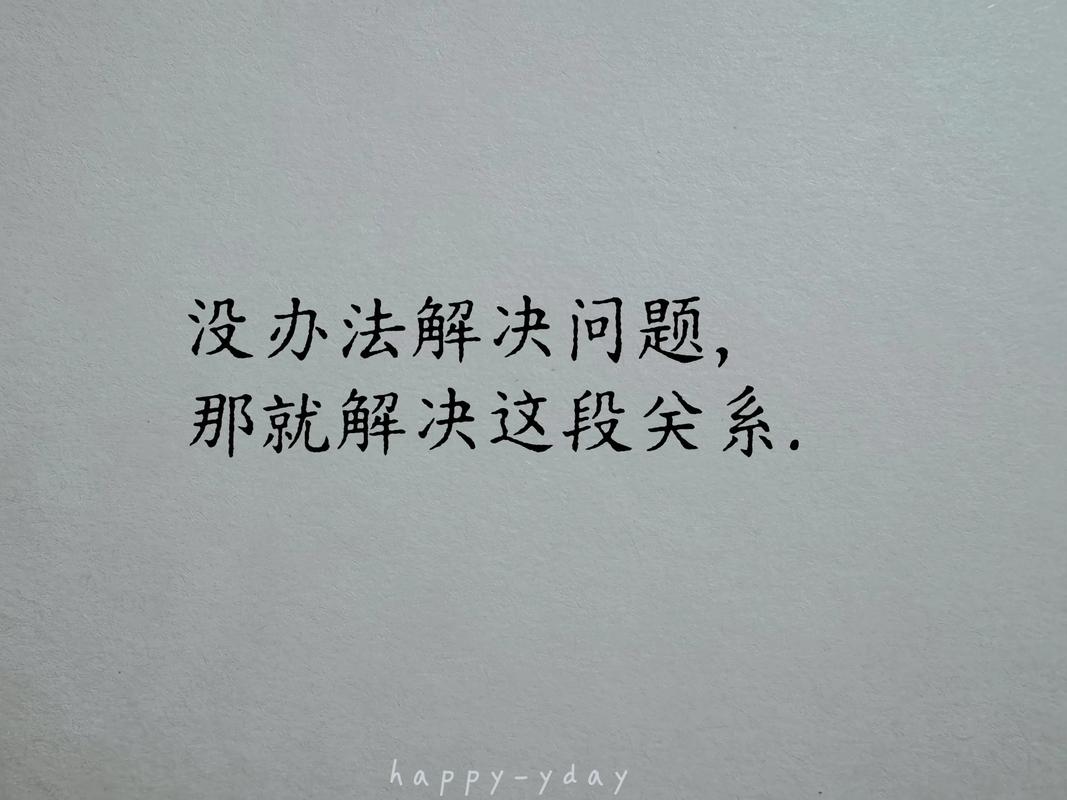 没办法解决问题,
那就解决这段关系.
happy-yday